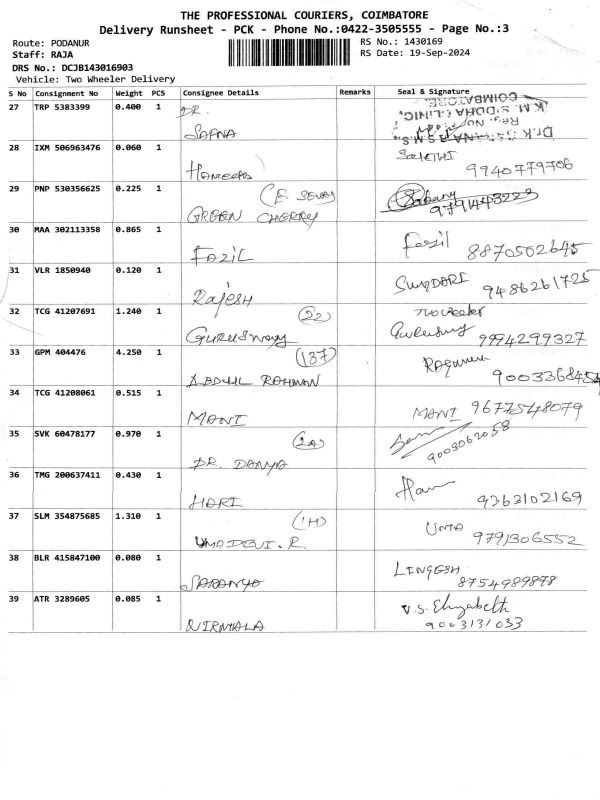 THE PROFESSIONAL COURIERS, COIMBATORE
Delivery Runsheet - PCK - Phone No.:0422-3505555 - Page No.:3
Route: PODANUR
RS No.: 1430169
Staff: RAJA
RS Date: 19-Sep-2024
DRS No.: DCJB143016903
Vehicle: Two Wheeler Delivery
S No Consignment No Weight PCS Consignee Details Remarks Seal & Signature
27 TRP 5383399 0.400 1 DR. SAPNA
K.M. SIDDHA CLINIC,
COIMBATORE.
Reg. No.
28 IXM 506963476 0.060 1 Hameeda Sakthi 9940779706
29 PNP 530356625 0.225 1 GREEN CHERRY
30 MAA 302113358 0.865 1 FAZIL Fazil 8870502645
31 VLR 1850940 0.120 1 Rajesh SUNDARI 9486261725
32 TCG 41207691 1.240 1 (22) GURUSWAMY 9994299327
33 GPM 404476 4.250 1 (137) ABDUL RAHMAN 9003368454
34 TCG 41208061 0.515 1 MANI MANI 9677548079
35 SVK 60478177 0.970 1 (2A) DR. DANYA 9003062058
36 TMG 200637411 0.430 1 HARI 9363102169
37 SLM 354875685 1.310 1 (1H) UMADEVI.R. Uma 9791306552
38 BLR 415847100 0.080 1 SARANYA LINGESH 8754989878
39 ATR 3289605 0.085 1 NIRMALA V.S. Elizabeth 9003131033